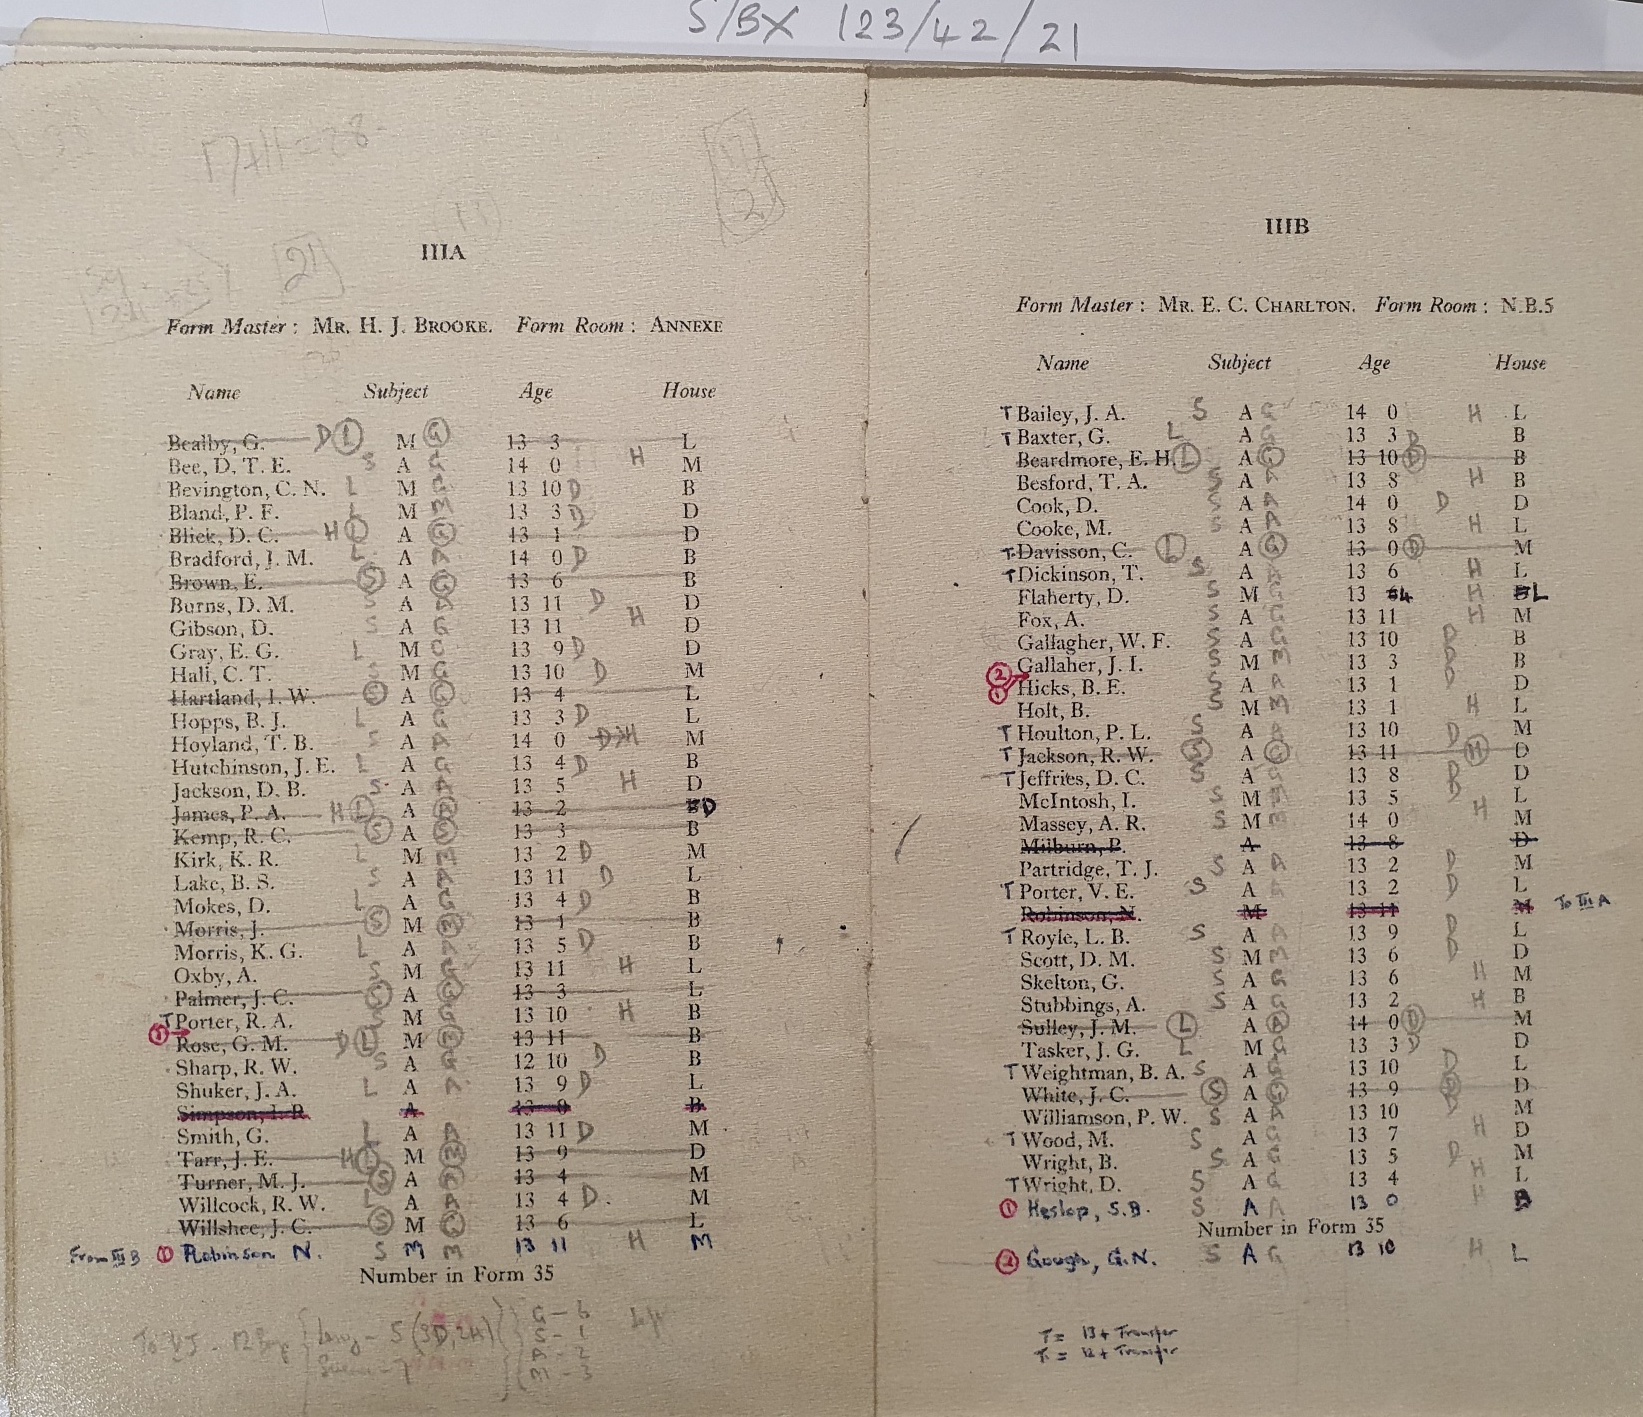 S/BX 123/42/21
17+11=28
13
17
2
21
IIIA
Form Master : MR. H. J. BROOKE. Form Room : ANNEXE
Name Subject Age House
Bealby, G. D L M G 13 3 L
Bee, D. T. E. S A G 14 0 H M
Bevington, C. N. L M G 13 10 D B
Bland, P. F. L M M 13 3 D D
Blick, D. C. H L A G 13 1 D
Bradford, J. M. L A A 14 0 D B
Brown, E. S A G 13 6 B
Burns, D. M. S A A 13 11 D D
Gibson, D. S A G 13 11 H D
Gray, E. G. L M G 13 9 D D
Hall, C. T. S M G 13 10 D M
Hartland, I. W. S A G 13 4 L
Hopps, B. J. L A G 13 3 D L
Hoyland, T. B. S A A 14 0 H M
Hutchinson, J. E. L A G 13 4 D B
Jackson, D. B. S A A 13 5 H D
James, P. A. H L A A 13 2 D
Kemp, R. C. S A S 13 3 B
Kirk, K. R. L M M 13 2 D M
Lake, B. S. S A A 13 11 D L
Mokes, D. L A G 13 4 D B
Morris, J. S M 13 1 B
Morris, K. G. L A 13 5 D B
Oxby, A. S M G 13 11 H L
Palmer, J. C. S A G 13 3 L
T Porter, R. A. S M G 13 10 H B
1 Rose, G. M. D L M 13 11 B
Sharp, R. W. S A G 12 10 D B
Shuker, J. A. L A A 13 9 D L
Simpson, I. R. A 13 0 B
Smith, G. L A A 13 11 D M
Tarr, J. E. H L M M 13 9 D
Turner, M. J. S A A 13 4 M
Willcock, R. W. L A A 13 4 D M
Willshee, J. C. S M G 13 6 L
From III B 1 Robinson N. S M M 13 11 H M
Number in Form 35
To VJ - 12 Boys Lang - 5 (3D, 2H) G - 6
S - 1
A - 2
M - 3
IIIB
Form Master : MR. E. C. CHARLTON. Form Room : N.B.5
Name Subject Age House
T Bailey, J. A. S A G 14 0 H L
T Baxter, G. L A G 13 3 D B
Beardmore, E. H. L A G 13 10 D B
Besford, T. A. S A A 13 8 H B
Cook, D. S A A 14 0 D D
Cooke, M. S A A 13 8 H L
T Davisson, C. L A G 13 0 D M
T Dickinson, T. S A A 13 6 H L
Flaherty, D. S M G 13 4 H L
Fox, A. S A G 13 11 H M
Gallagher, W. F. S A G 13 10 D B
Gallaher, J. I. S M M 13 3 D B
2
1 Hicks, B. E. S A A 13 1 D D
Holt, B. S M M 13 1 H L
T Houlton, P. L. S A A 13 10 D M
T Jackson, R. W. S A G 13 11 H D
T Jeffries, D. C. S A G 13 8 D D
McIntosh, I. S M M 13 5 D L
Massey, A. R. S M M 14 0 H M
Milburn, P. A 13 8 D
Partridge, T. J. S A A 13 2 D M
T Porter, V. E. S A A 13 2 D L
Robinson, N. M 13 11 M To III A
T Royle, L. B. S A A 13 9 D L
Scott, D. M. S M M 13 6 D D
Skelton, G. S A G 13 6 H M
Stubbings, A. S A G 13 2 H B
Sulley, J. M. L A A 14 0 D M
Tasker, J. G. L M G 13 3 D D
T Weightman, B. A. S A G 13 10 D L
White, J. C. S A G 13 9 D D
Williamson, P. W. S A A 13 10 D M
T Wood, M. S A G 13 7 H D
Wright, B. S A G 13 5 D M
T Wright, D. S A G 13 4 H L
1 Heslop, S.B. S A A 13 0 H B
Number in Form 35
2 Gough, G.N. S A G 13 10 H L
T = 13+ Transfer
T = 12+ Transfer